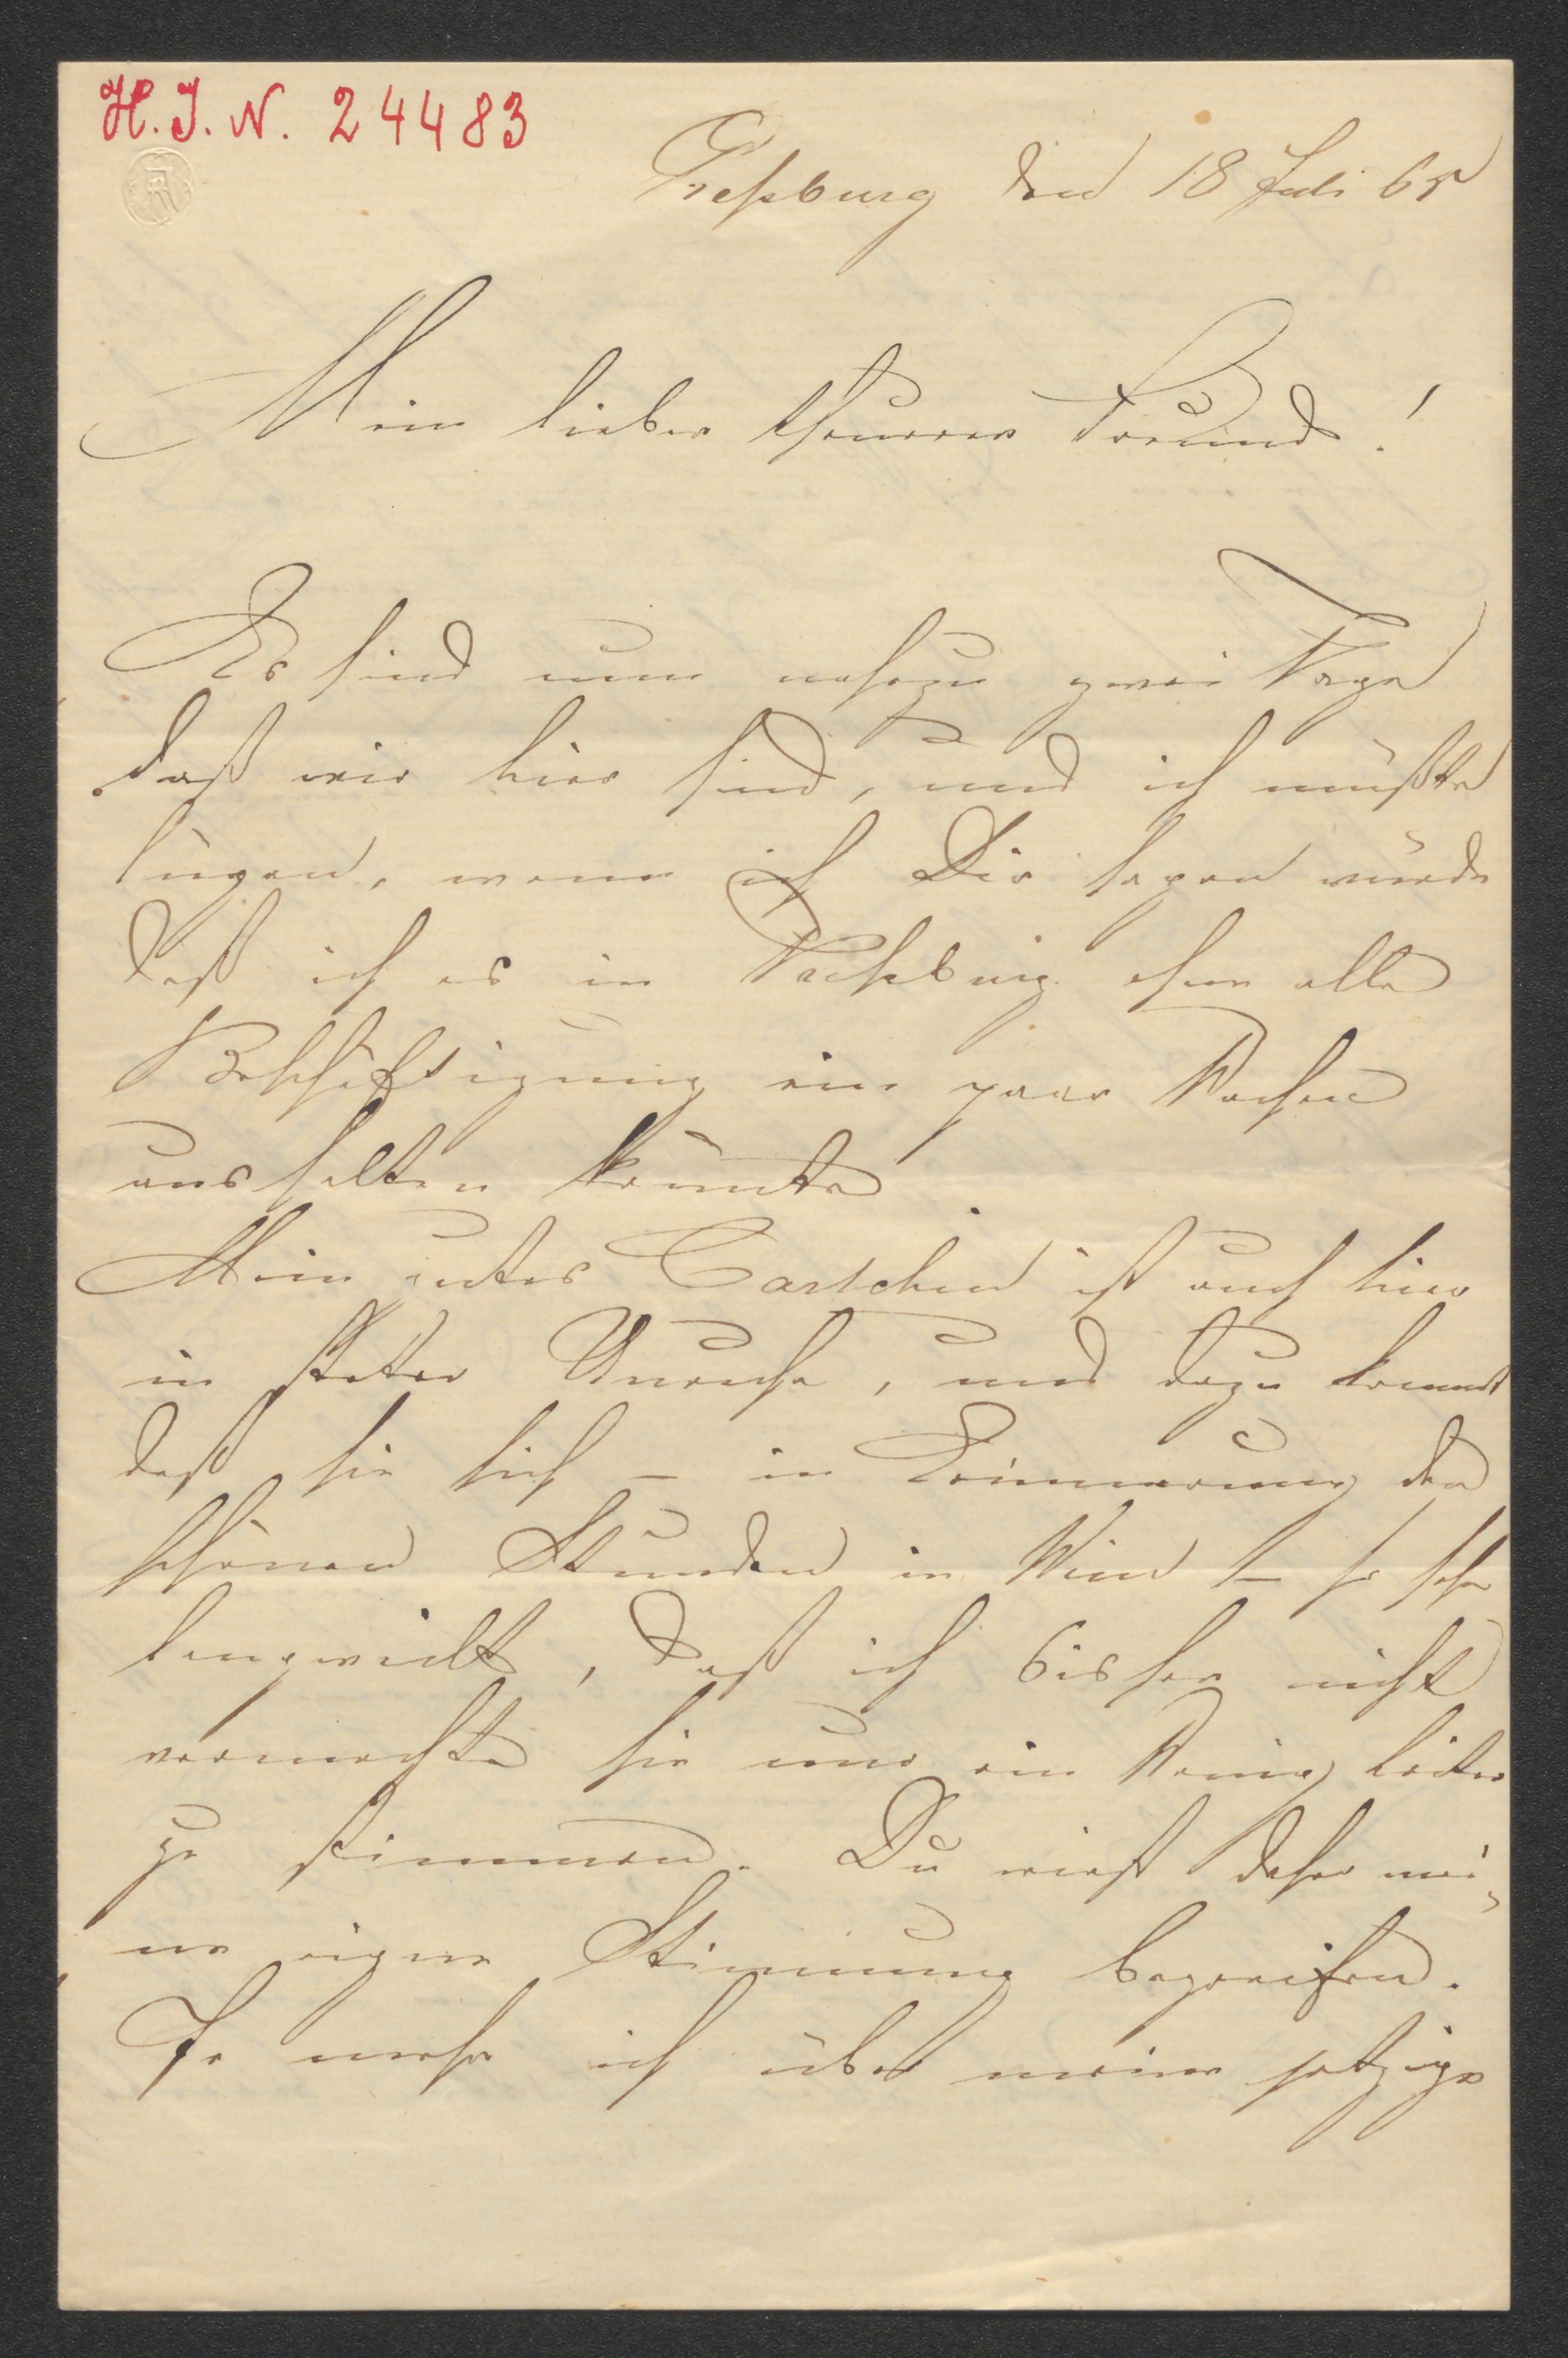 H. J. N. 24483
Preßburg den 18 Juli 65
Mein lieber theurer Freund!
Es sind nun nahezu zwei Tage
daß wir hier sind, und ich müßte
lügen, wenn ich Dir sagen würde
daß ich es in Preßburg ohne alle
Beschäftigung ein paar Wochen
aushalten könnte.
Mein gutes Carlchen ist auch hier
in steter Unruhe, und dazu kommt
daß sie sich – in Erinnerung der
schönen Stunden in Wien – so sehr
langweilt, daß ich bisher nicht
vermochte sie nur ein Wenig heiter
zu stimmen. Du wirst daher mei-
ne eigne Stimmung begreifen.
Je mehr ich über meine jetzige